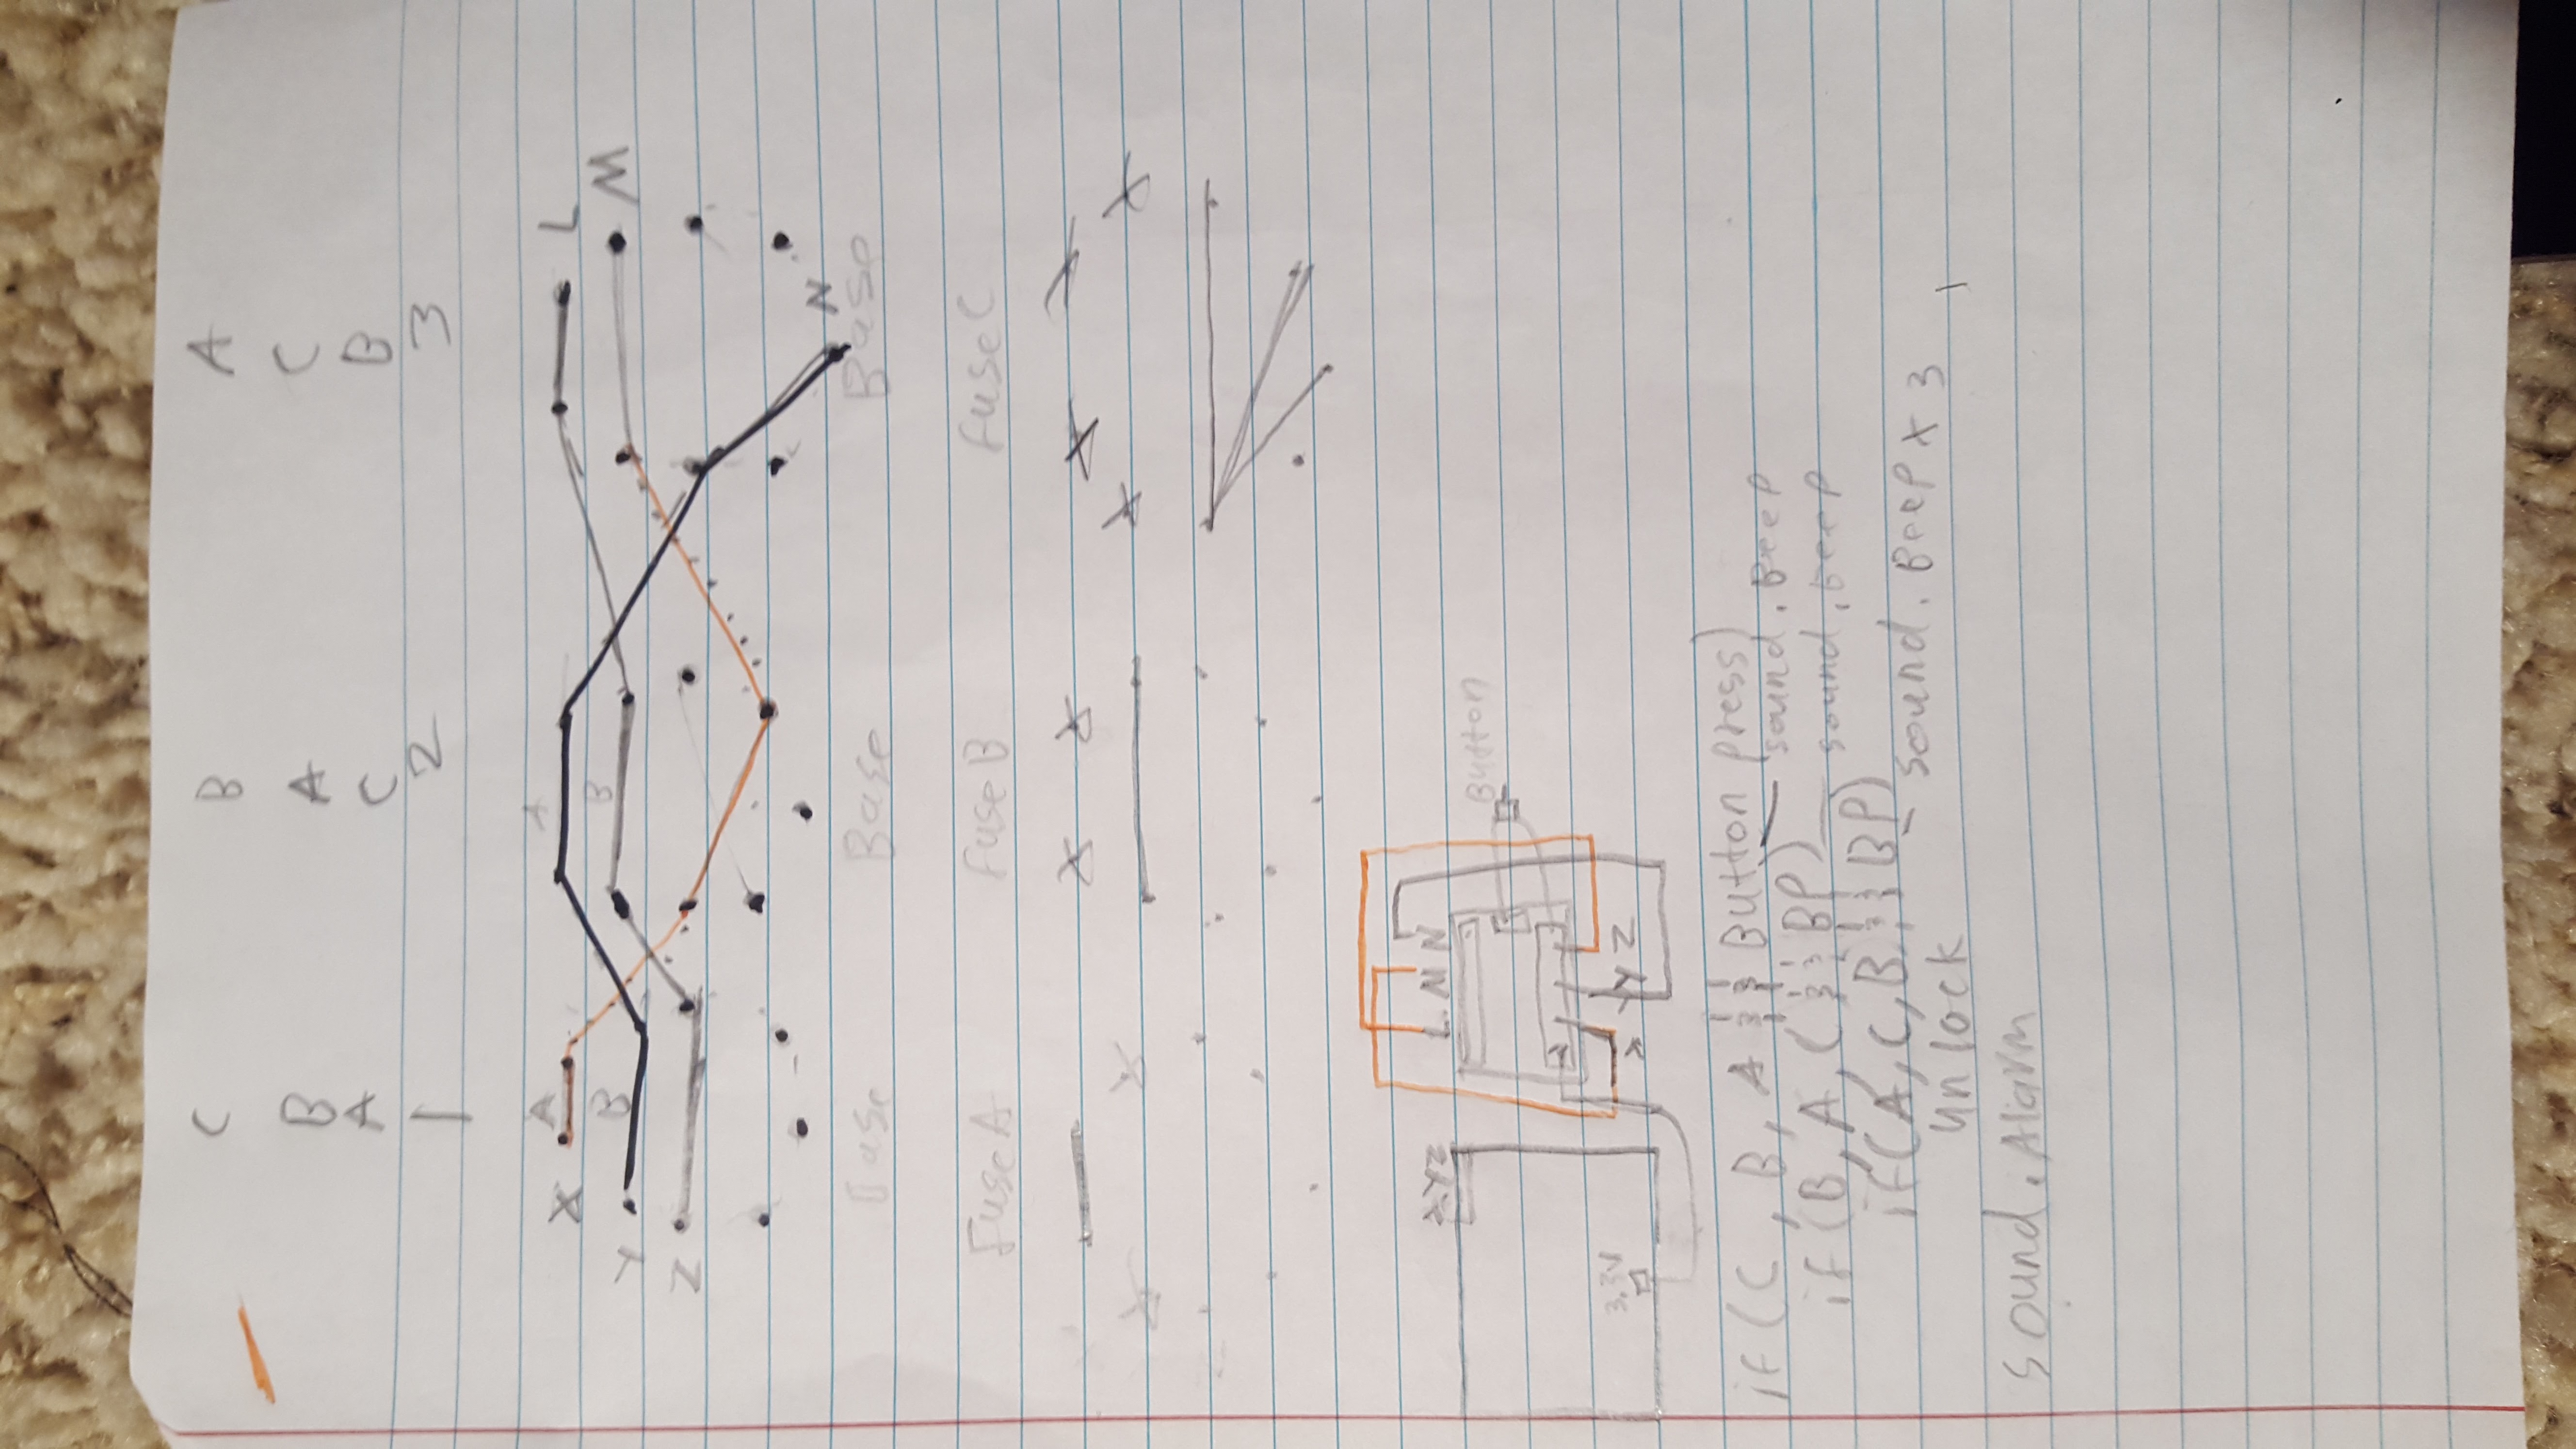 C B A
B A C
A C B
1 2 3
X A A L
Y B B M
Z
N
Base Base Base
Fuse A Fuse B Fuse C
X X
X X X X
Z
L M N
XYZ
Button
3.3V
X Y Z
if (C, B, A && Button press)
- sound. Beep
if (B, A, C && BP)
- sound. Beep
if (A, C, B && BP)
- sound. Beep x 3
unlock
sound. Alarm